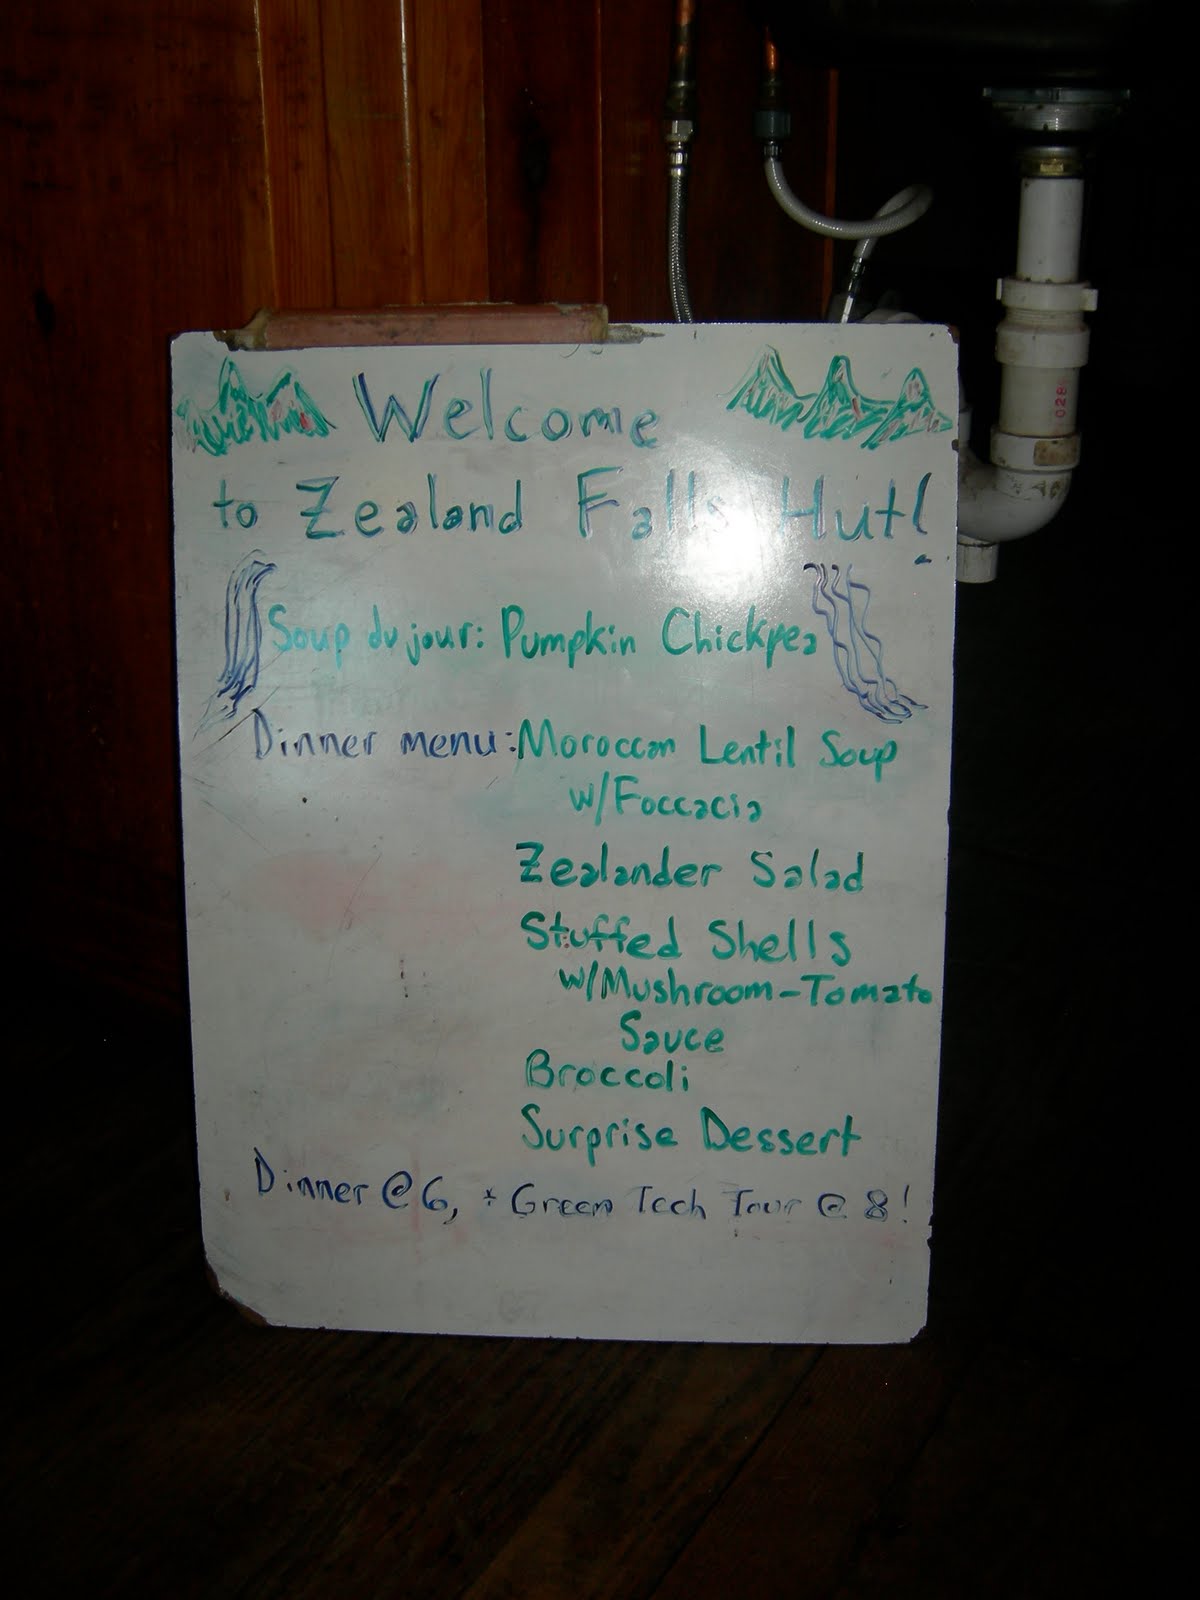 Welcome
to Zealand Falls Hut!
Soup du jour: Pumpkin Chickpea
Dinner menu: Moroccan Lentil Soup
w/Foccacia
Zealander Salad
Stuffed Shells
w/Mushroom-Tomato
Sauce
Broccoli
Surprise Dessert
Dinner @ 6, * Green Tech Tour @ 8!
028